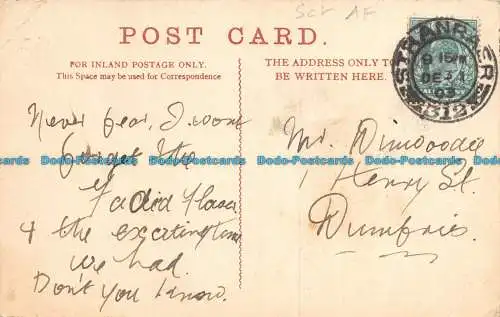 Sct AF
POST CARD.
FOR INLAND POSTAGE ONLY.
This Space may be used for Correspondence
THE ADDRESS ONLY TO
BE WRITTEN HERE.
STRANRAER
9 15PM
DE 24
03
312
Never fear, I wont
forget the
Faded
& the exciting time
we had.
Don't you know.
Mr. Dinwoodie
1 Henry St.
Dumfries.
Dodo-Postcards Dodo-Postcards Dodo-Postcards Dodo-Postcards